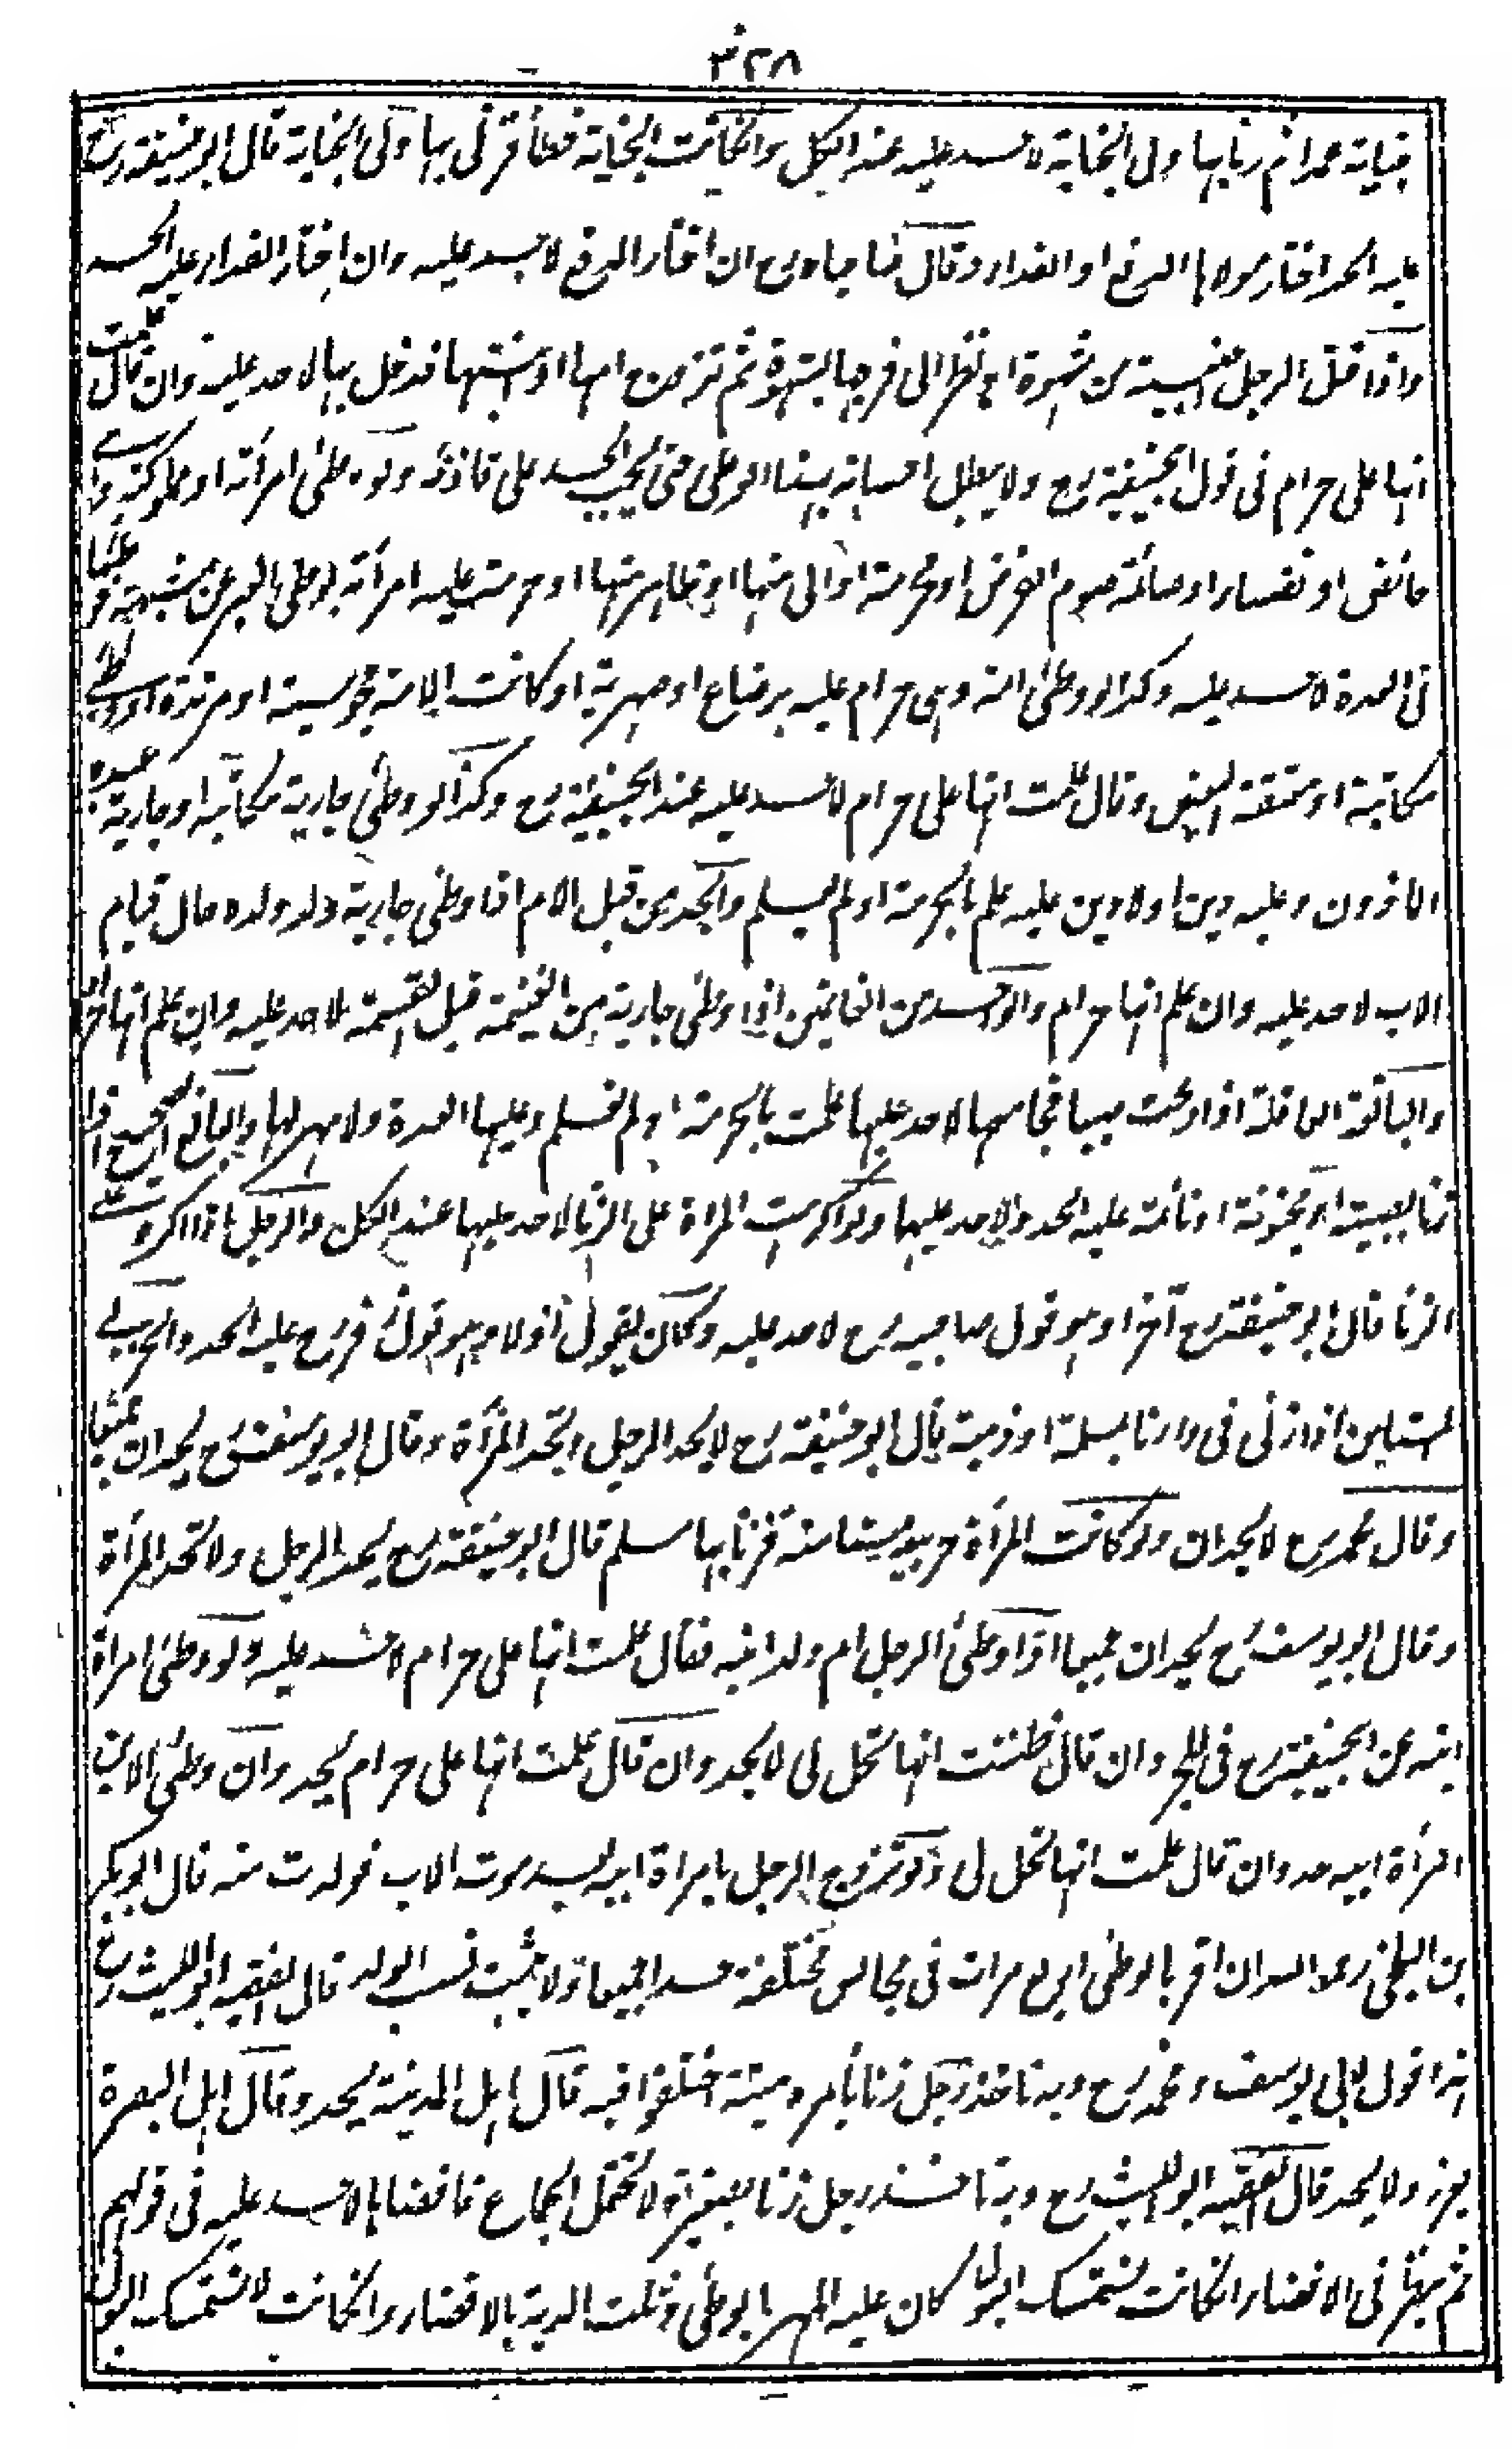 ٣٢٨
جناية عمدا ثم زنا بها ولى الجناية لا حد عليه عند الكل وان كانت الجناية خطأ فزنى بها ولى الجناية قال ابو حنيفة رح
عليه الحد اختار مولاها الدفع او الفداء وقال صاحباه رح ان اختار الدفع لا حد عليه وان اختار الفداء عليه الحد
واذا قبل الرجل اجنبية عن شهوة او نظر الى فرجها بشهوة ثم تزوج امها او ابنتها فدخل بها لا حد عليه وان قال علمت
انها على حرام فى قول ابيحنيفة رح ولا يبطل احصانه بهذا الوطى حتى يجب الحد على قاذفه ولو وطئ امرأته او مملوكته وهى
حائض او نفساء او صائمة صوم الفرض او محرمة او الى منها او ظاهر منها او حرمت عليه امرأته بوطى الغير عن شبهة فوطئها
فى العدة لا حد عليه وكذا لو وطئ امته وهى حرام عليه برضاع او صهرية او كانت الامة مجوسية او مرتدة او وطى
مكاتبة او معتقة البعض وقال علمت انها على حرام لا حد عليه عند ابيحنيفة رح وكذا لو وطئ جارية مكاتبه او جارية عبده
الماذون وعليه دين او لا دين عليه علم بالحرمة او لم يعلم والجد من قبل الام اذا وطئ جارية ولد ولده حال قيام
الاب لا حد عليه وان علم انها حرام والواحد من الغانمين اذا وطئ جارية من الغنيمة قبل القسمة لا حد عليه وان علم انها حرام
والبالغة العاقلة اذا دعت صبيا فجامعها لا حد عليها علمت بالحرمة او لم تعلم وعليها العدة ولا مهر لها والبالغ الصحيح اذا
زنا بصبية او مجنونة او نائمة عليه الحد ولا حد عليها ولو اكرهت المراة على الزنا لا حد عليها عند الكل والرجل اذا اكره على
الزنا قال ابو حنيفة رح آخرا وهو قول صاحبيه رح لا حد عليه وكان يقول اولا وهو قول زفر رح عليه الحد والحربى
المستامن اذا زنى فى دارنا بمسلمة او ذمية قال ابو حنيفة رح لا يحد الرجل وتحد المرأة وقال ابو يوسف رح يحدان جميعا
وقال محمد رح لا يحدان ولو كانت المرأة حربية مستامنة فزنا بها مسلم قال ابو حنيفة رح يحد الرجل ولا تحد المرأة
وقال ابو يوسف رح يحدان جميعا اذا وطئ الرجل ام ولد ابنه فقال علمت انها على حرام لا حد عليه ولو وطئ امراة
ابنه عن ابيحنيفة رح فى المجرد ان قال ظننت انها تحل لى لا يحد وان قال علمت انها على حرام يحد وان وطئ الابن
امرأة ابيه حد وان قال علمت انها تحل لى ولو تزوج الرجل بامراة ابيه بعد موت الاب فولدت منه قال ابو بكر
بن البلخى رحمه الله ان اقر بالوطى اربع مرات فى مجالس مختلفة حدا جميعا ولا يثبت نسب الولد قال الفقيه ابو الليث رح
هذا قول ابى يوسف ومحمد رح وبه ناخذ رجل زنا بامرأة ميتة اختلفوا فيه قال اهل المدينة يحد وقال اهل البصرة
يعزر ولا يحد قال الفقيه ابو الليث رح وبه ناخذ رجل زنا بصغيرة لا تحتمل الجماع فافضاها لا حد عليه فى قولهم
ثم ينظر فى الافضاء ان كانت تستمسك البول كان عليه المهر بالوطى وثلث الدية بالافضاء وان كانت لا تستمسك البول